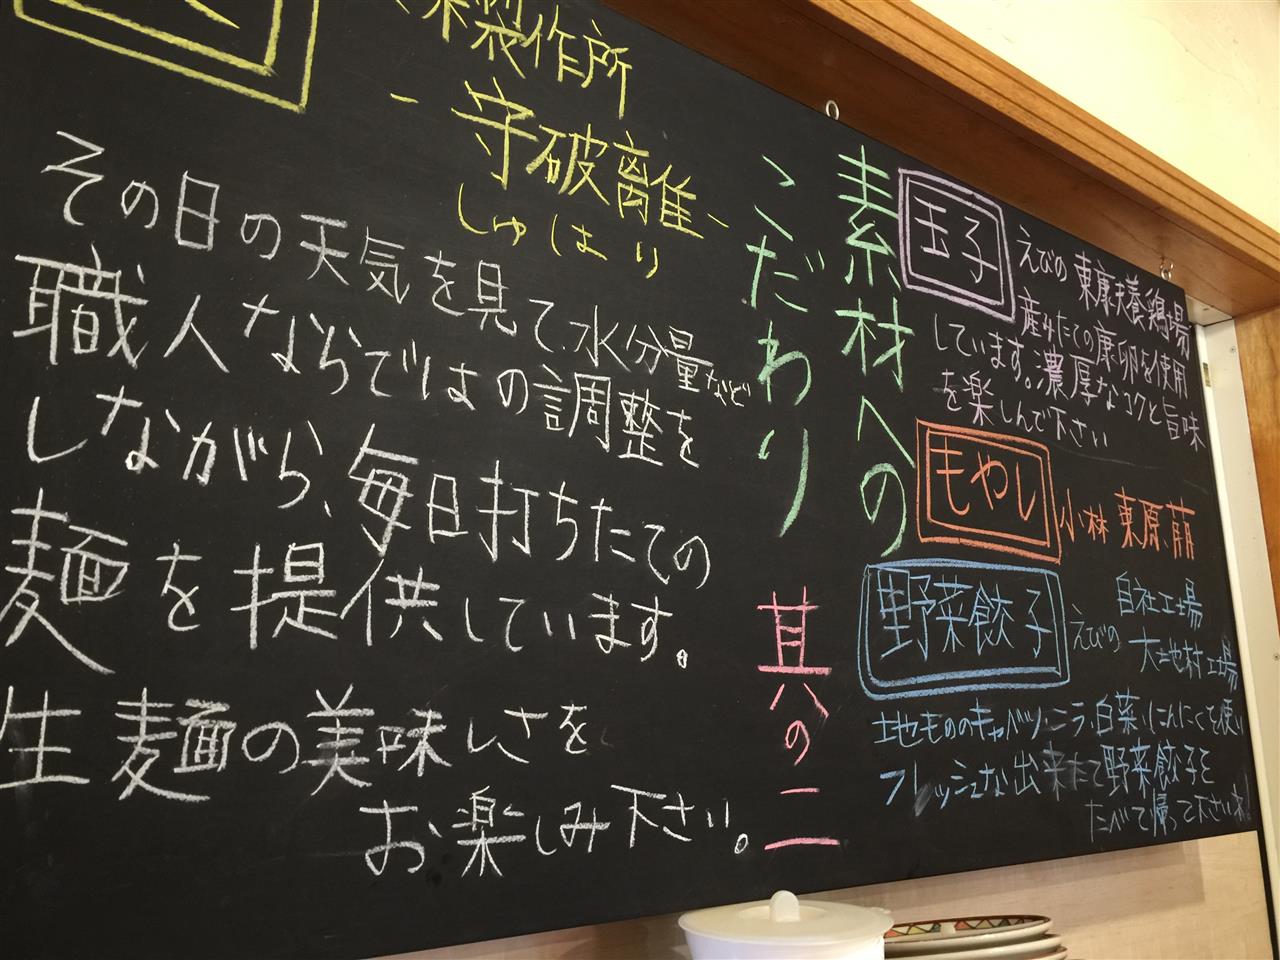 製作所
-守破離-
しゅはり
その日の天気を見て、水分量など
職人ならではの調整を
しながら、毎日打ちたての
麺を提供しています。
生麺の美味しさを
お楽しみ下さい。
素材への
こだわり
其の二
玉子
えびの 東康夫養鶏場
産みたての康卵を使用
しています。濃厚なコクと旨味
を楽しんで下さい
もやし
小林 東原、萠
野菜餃子
えびの
自社工場
大地村工場
地もののキャベツ、ニラ、白菜、にんにくを使い
フレッシュな出来たて野菜餃子を
たべて帰って下さいネ!